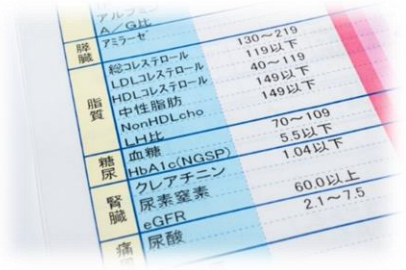 A/G比
膵臓 アミラーゼ
脂質 総コレステロール 130～219
LDLコレステロール 119以下
HDLコレステロール 40～119
中性脂肪 149以下
NonHDLcho 149以下
LH比
糖尿 血糖 70～109
HbA1c(NGSP) 5.5以下
腎臓 クレアチニン 1.04以下
尿素窒素
eGFR 60.0以上
痛 尿酸 2.1～7.5